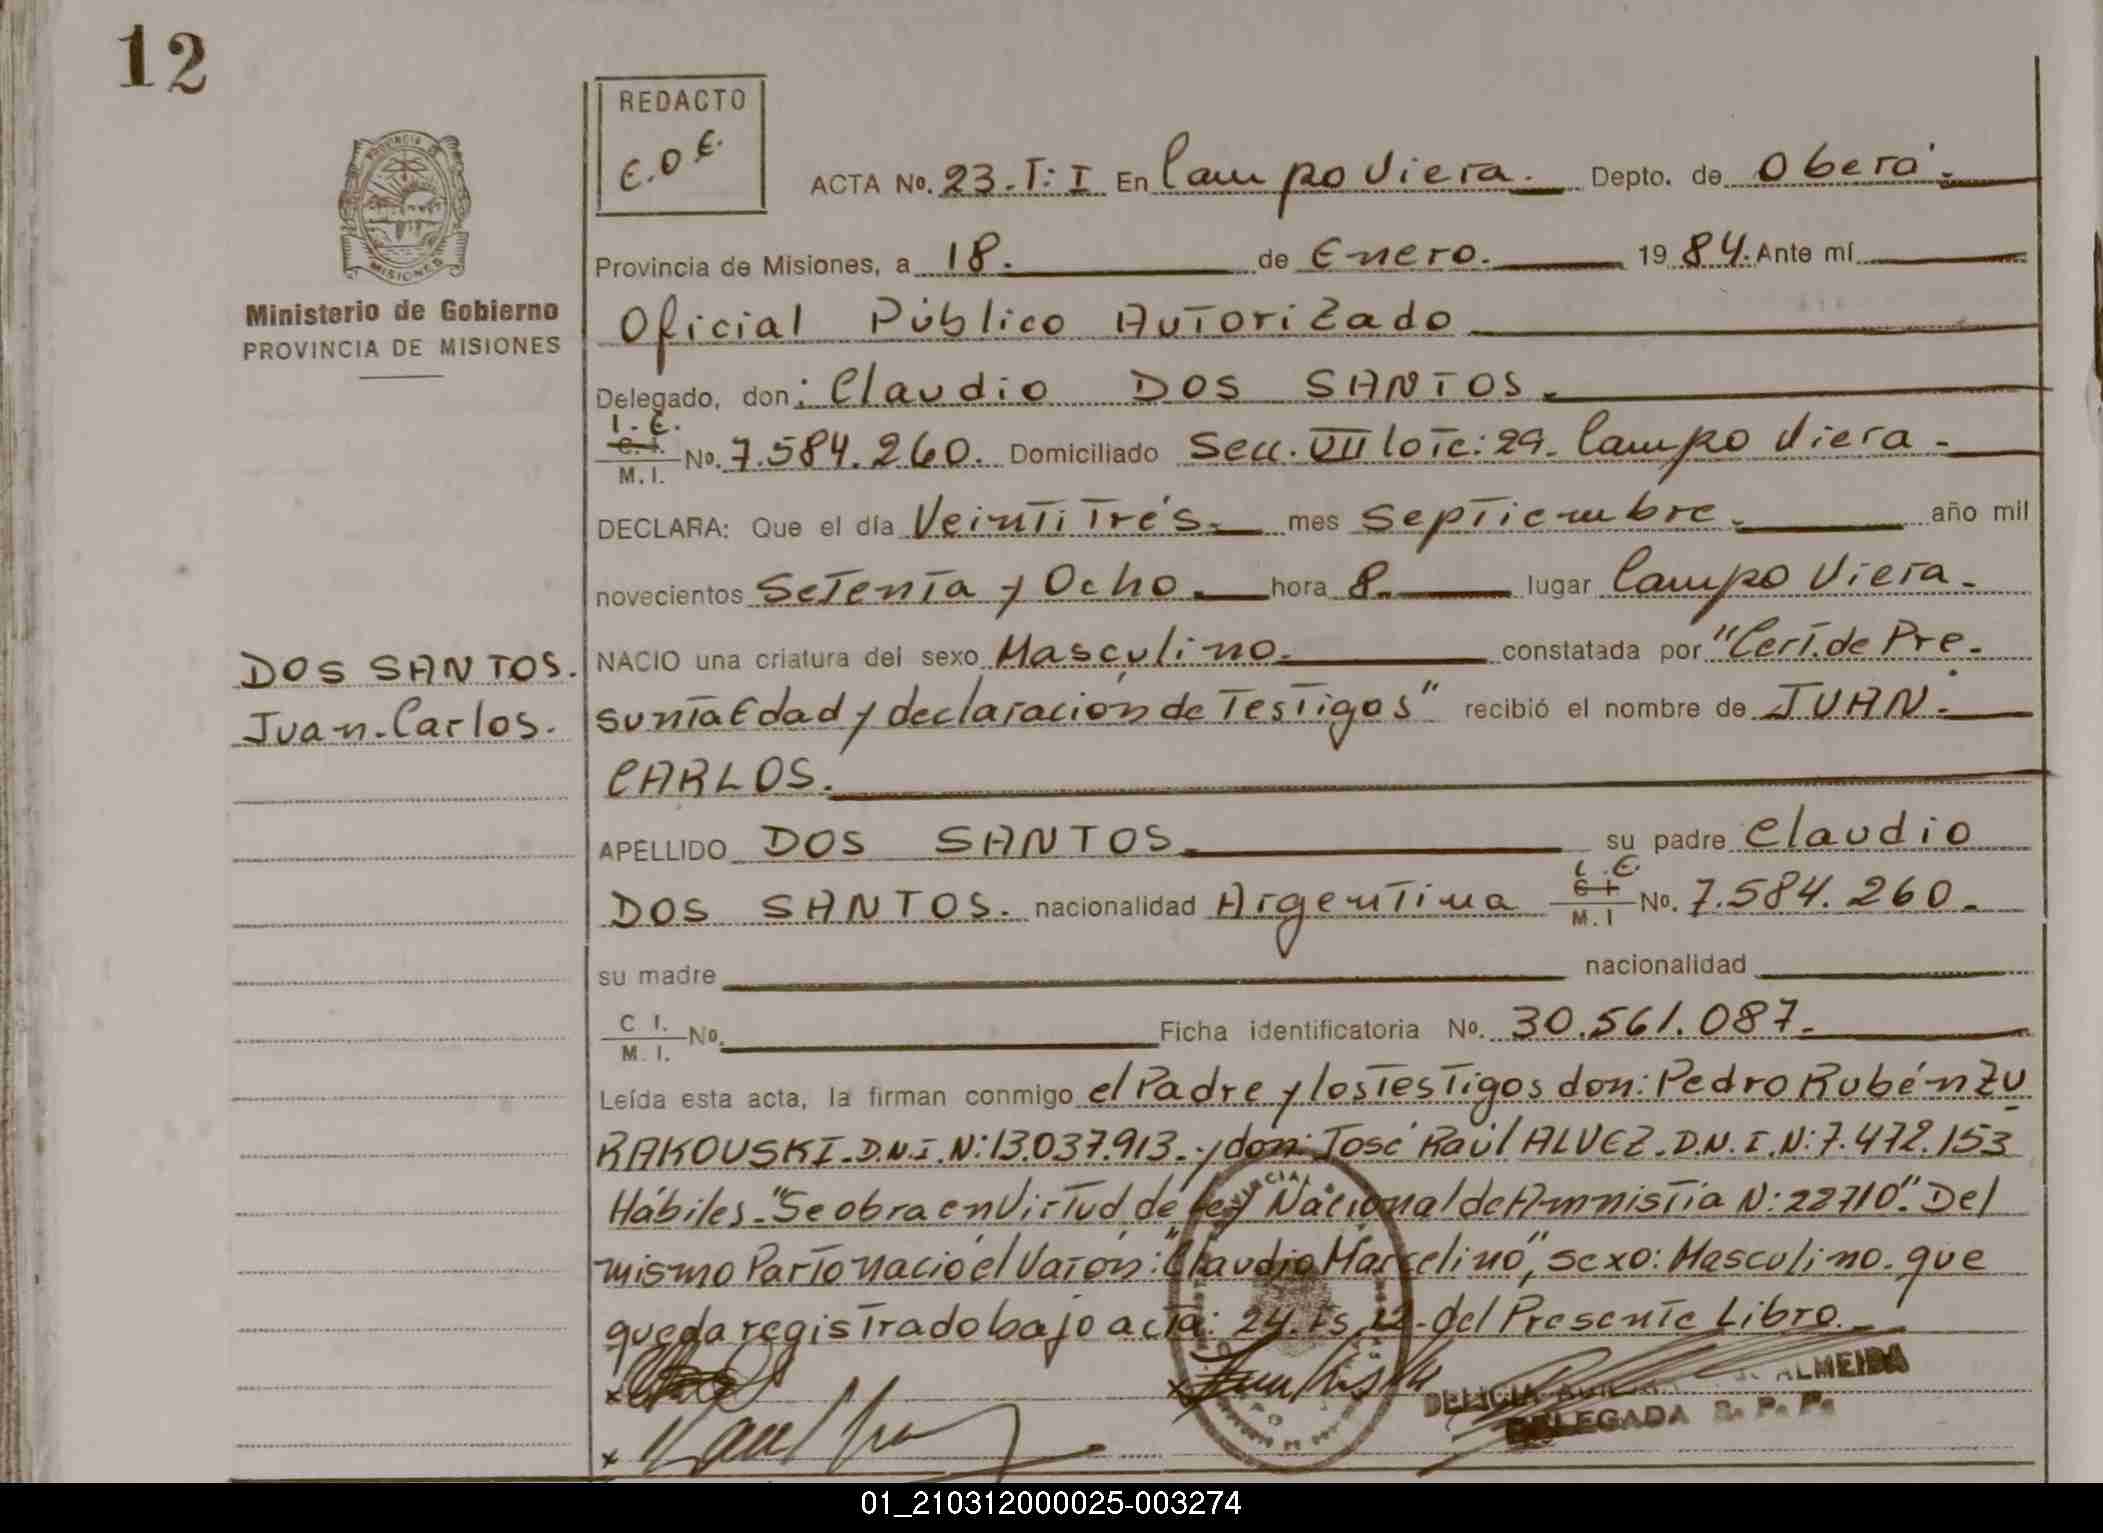 12
REDACTO
E.O.E.
ACTA No. 23.T: I En Campo Viera. Depto. de Oberá.
Provincia de Misiones, a 18. de Enero. 1984. Ante mí
Ministerio de Gobierno
PROVINCIA DE MISIONES
Oficial Público Autorizado
Delegado, don: Claudio DOS SANTOS.
L.E.
C.I.
M.I. No. 7.584.260. Domiciliado Secc. VII lote: 29. Campo Viera.
DECLARA: Que el día Veintitrés. mes Septiembre. año mil
novecientos Setenta y Ocho. hora 8. lugar Campo Viera.
NACIO una criatura del sexo Masculino. constatada por "Cert. de Pre-
DOS SANTOS.
Juan-Carlos.
sunta Edad y declaración de Testigos" recibió el nombre de JUAN.
CARLOS.
APELLIDO DOS SANTOS. su padre Claudio
DOS SANTOS. nacionalidad Argentina L.E. C I M.I No. 7.584.260.
su madre nacionalidad
C I. M.I. No. Ficha identificatoria No. 30.561.087.
Leída esta acta, la firman conmigo el Padre y los Testigos don: Pedro Rubén ZU
RAKOUSKI. D.N.I. N: 13.037.913. y don: José Raúl ALVEZ. D.N.I. N: 7.472.153
Hábiles. "Se obra en Virtud de Ley Nacional de Amnistía N: 22710". Del
mismo Parto nació el Varón: "Claudio Marcelino", sexo: Masculino. que
queda registrado bajo acta: 24. Fs 12. del Presente Libro.
DELICIA ALMEIDA
DELEGADA R. P. P.
01_210312000025-003274